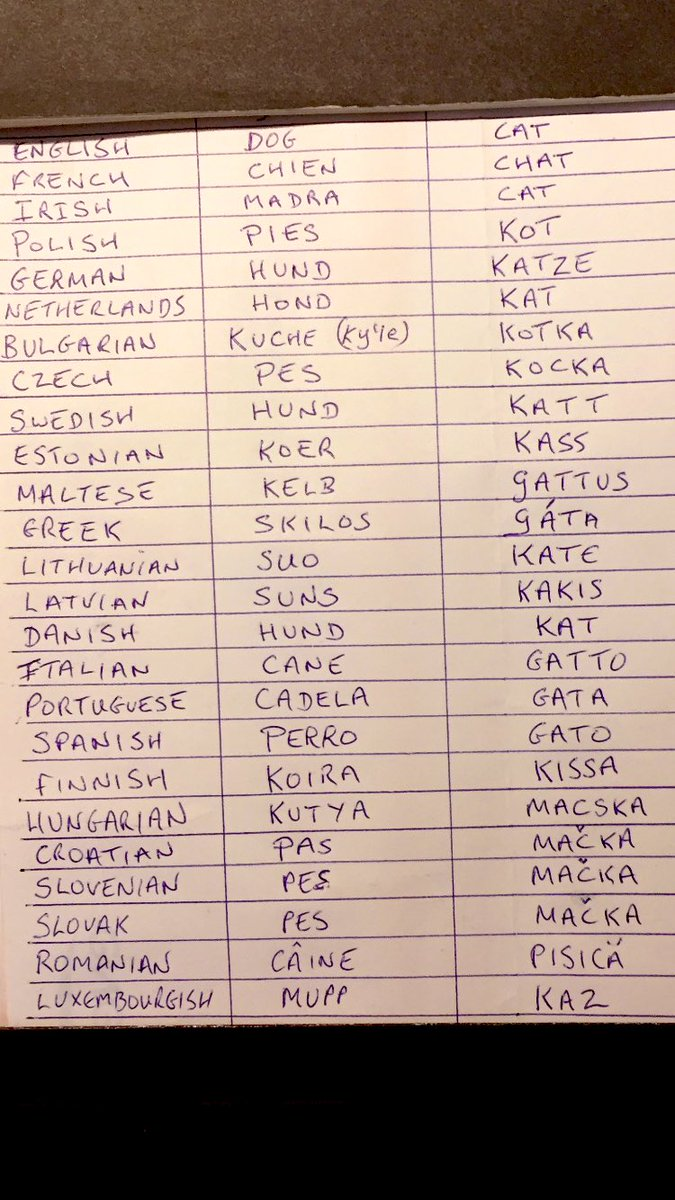 ENGLISH DOG CAT
FRENCH CHIEN CHAT
IRISH MADRA CAT
POLISH PIES KOT
GERMAN HUND KATZE
NETHERLANDS HOND KAT
BULGARIAN KUCHE (Ky'le) KOTKA
CZECH PES KOCKA
SWEDISH HUND KATT
ESTONIAN KOER KASS
MALTESE KELB GATTUS
GREEK SKILOS GÁTA
LITHUANIAN SUO KATE
LATVIAN SUNS KAKIS
DANISH HUND KAT
ITALIAN CANE GATTO
PORTUGUESE CADELA GATA
SPANISH PERRO GATO
FINNISH KOIRA KISSA
HUNGARIAN KUTYA MACSKA
CROATIAN PAS MAČKA
SLOVENIAN PES MAČKA
SLOVAK PES MAČKA
ROMANIAN CÂINE PISICĂ
LUXEMBOURGISH MUPP KAZ